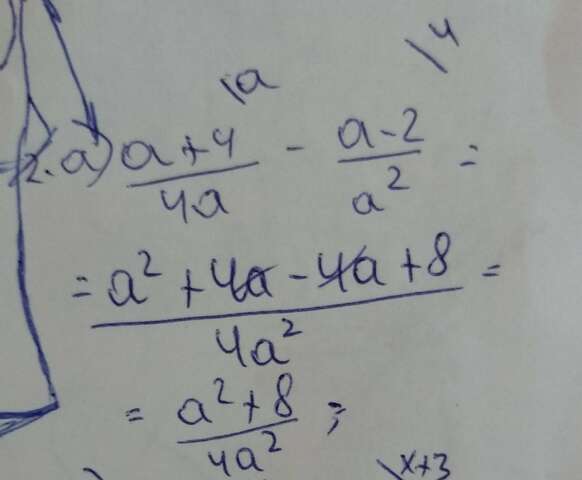 \a \4
2. a) (a+4)/(4a) - (a-2)/(a²) =
= (a² + 4a - 4a + 8)/(4a²) =
= (a² + 8)/(4a²) ;
\x+3